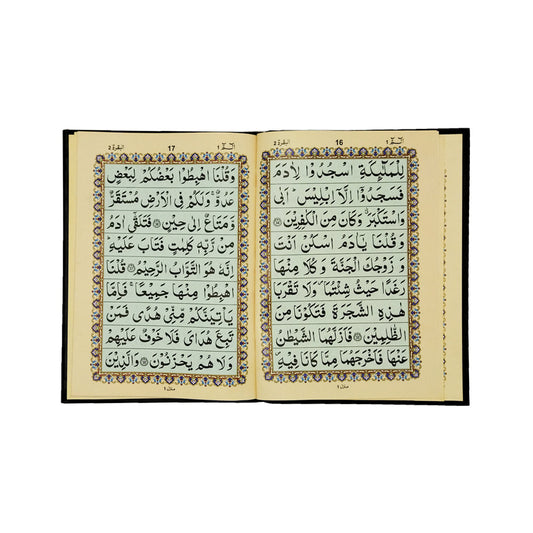 البقرة ٢
16
الٓمّٓ ١
لِلْمَلٰٓئِكَةِ اسْجُدُوْا لِاٰدَمَ
فَسَجَدُوْۤا اِلَّاۤ اِبْلِیْسَ ؕ اَبٰی
وَاسْتَكْبَرَ ٭۫ وَكَانَ مِنَ الْكٰفِرِیْنَ ۝
وَ قُلْنَا یٰۤاٰدَمُ اسْكُنْ اَنْتَ
وَ زَوْجُكَ الْجَنَّةَ وَ كُلَا مِنْهَا
رَغَدًا حَیْثُ شِئْتُمَا ۪ وَلَا تَقْرَبَا
هٰذِهِ الشَّجَرَةَ فَتَكُوْنَا مِنَ
الظّٰلِمِیْنَ ۝ فَاَزَلَّهُمَا الشَّیْطٰنُ
عَنْهَا فَاَخْرَجَهُمَا مِمَّا كَانَا فِیْهِ ۪
منزل ١
البقرة ٢
17
الٓمّٓ ١
وَ قُلْنَا اهْبِطُوْا بَعْضُكُمْ لِبَعْضٍ
عَدُوٌّ ۚ وَ لَكُمْ فِی الْاَرْضِ مُسْتَقَرٌّ
وَ مَتَاعٌ اِلٰی حِیْنٍ ۝ فَتَلَقّٰۤی اٰدَمُ
مِنْ رَّبِّهٖ كَلِمٰتٍ فَتَابَ عَلَیْهِ ؕ
اِنَّهٗ هُوَ التَّوَّابُ الرَّحِیْمُ ۝ قُلْنَا
اهْبِطُوْا مِنْهَا جَمِیْعًا ۚ فَاِمَّا
یَاْتِیَنَّكُمْ مِّنِّیْ هُدًی فَمَنْ
تَبِعَ هُدَایَ فَلَا خَوْفٌ عَلَیْهِمْ
وَلَا هُمْ یَحْزَنُوْنَ ۝ وَالَّذِیْنَ
منزل ١